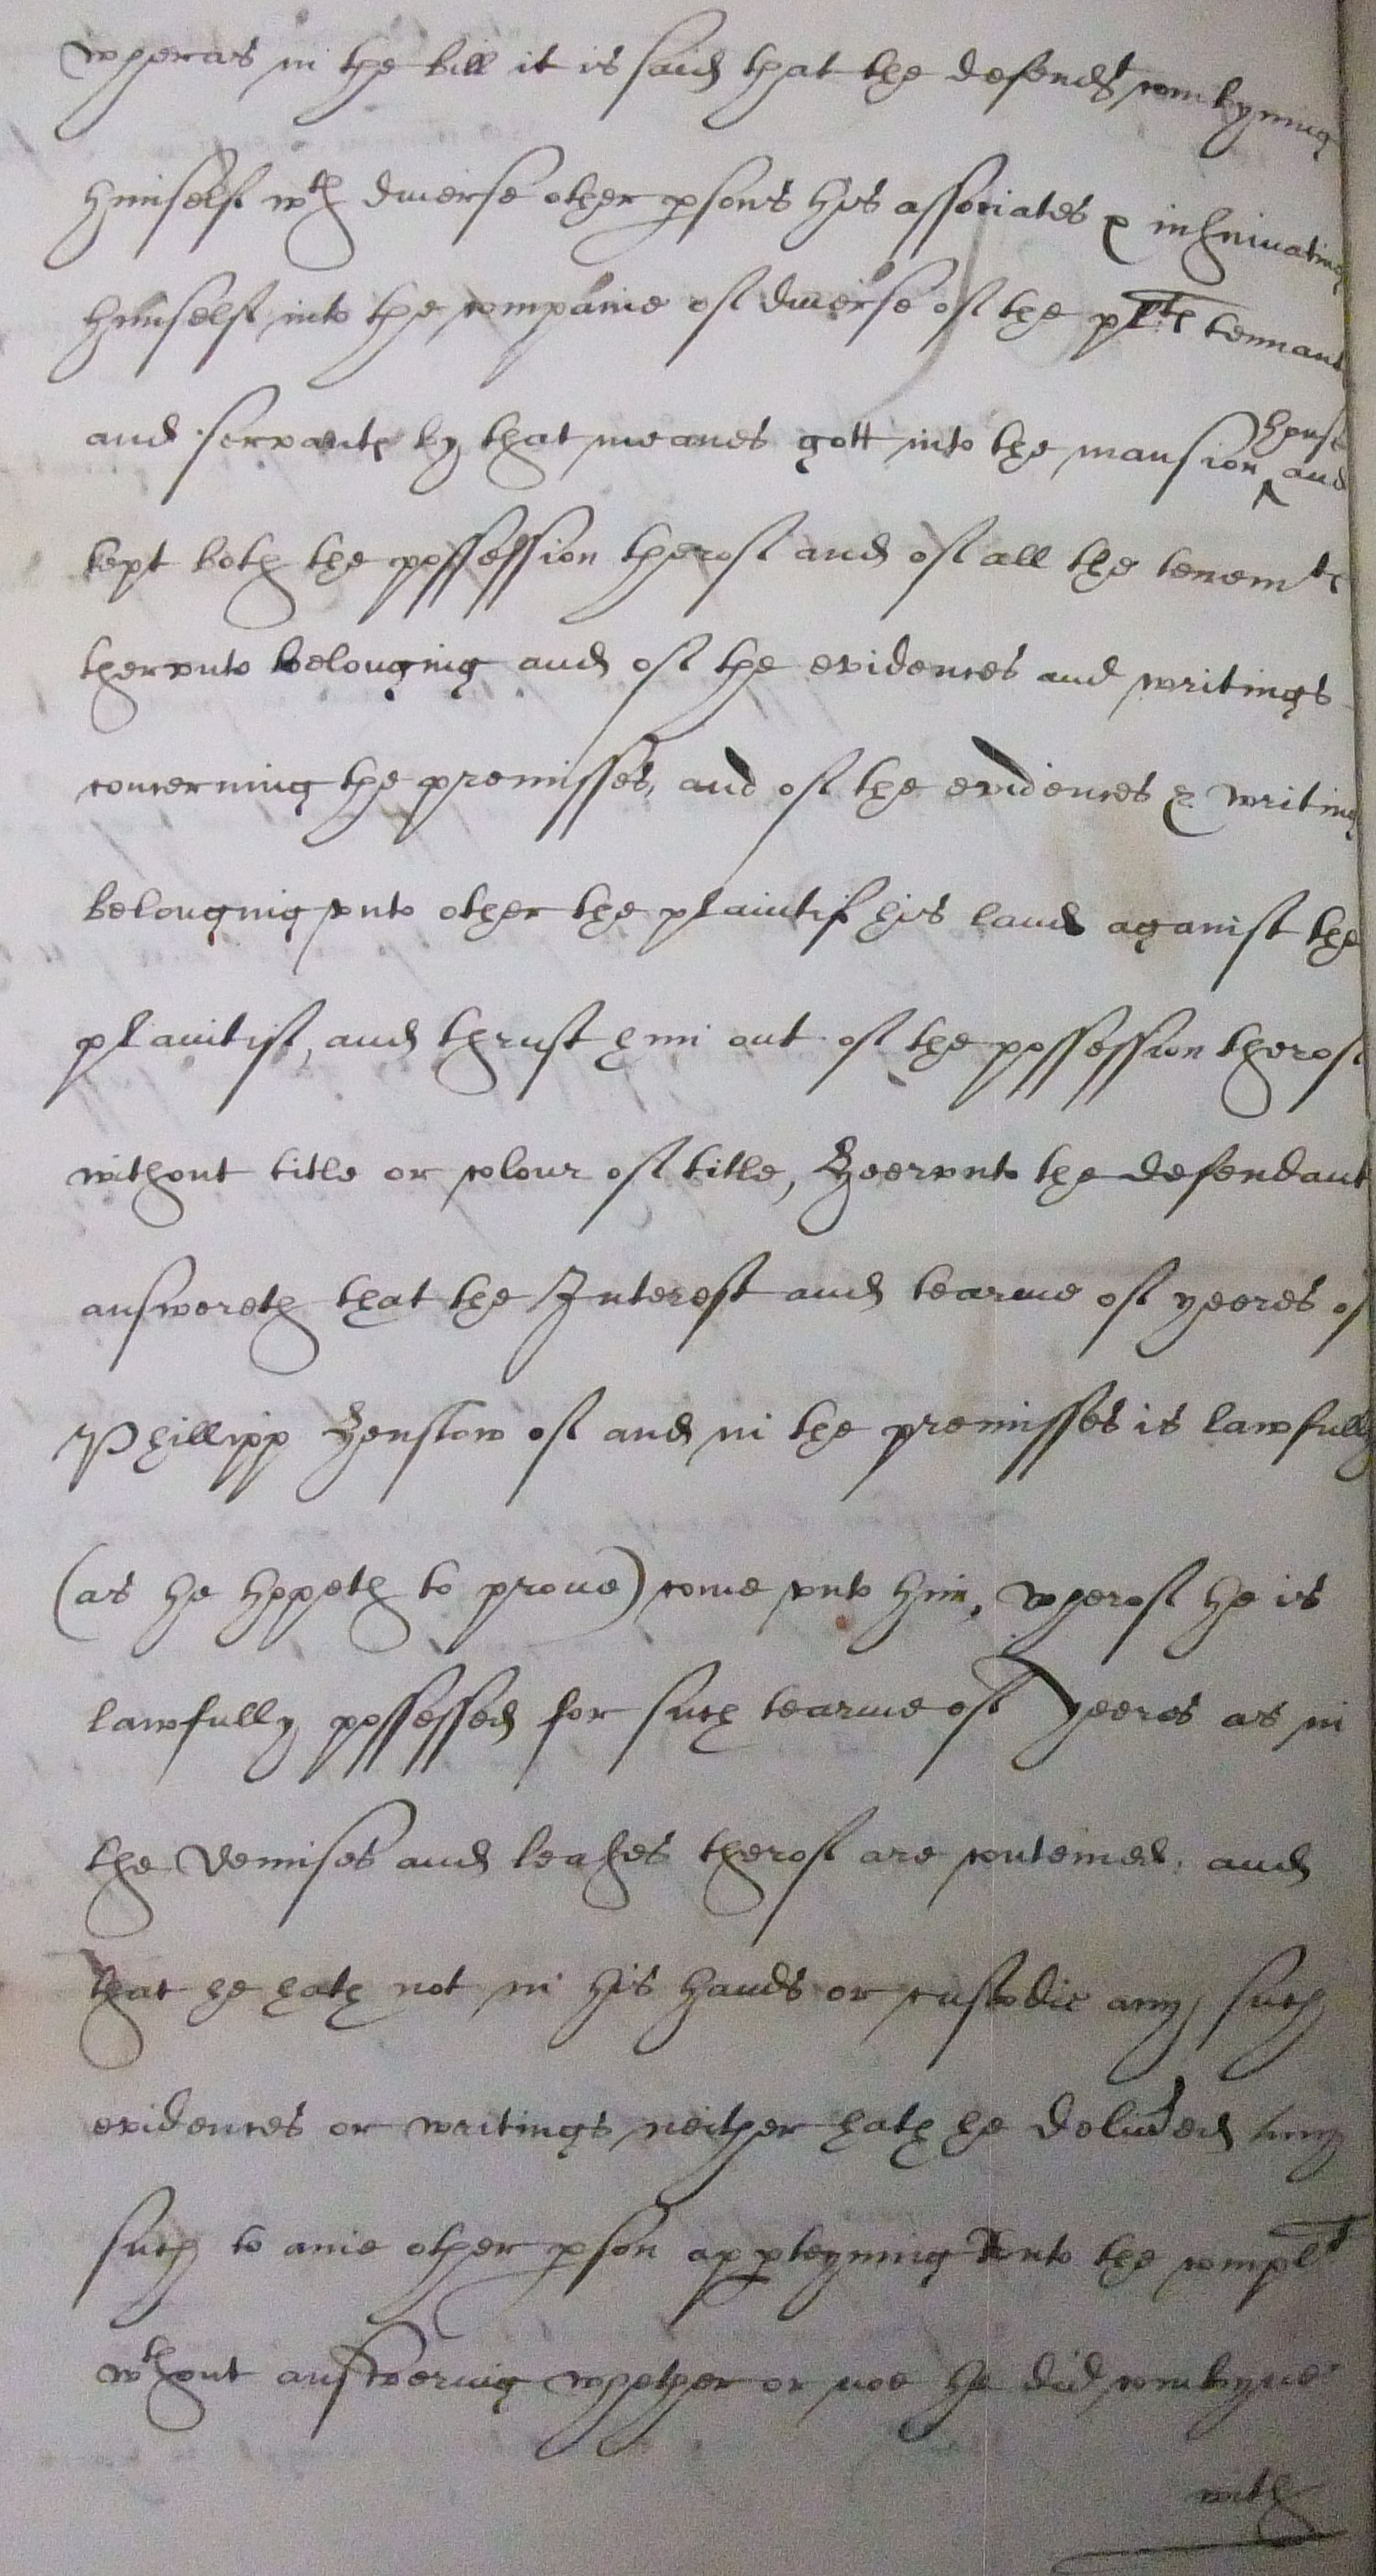 wheras in the bill it is said that the defendt combyning
himself wth diverse other psons his associates & insinuating
himself into the companie of diverse of the pltes tennants
and servantes by that meanes gott into the mansion ^ house and
kept both the possession therof and of all the tenemtes
therunto belonging and of the evidences and writings
concerning the premisses, and of the evidences & writings
belonging unto other the plaintif his land against the
plaintif, and thrust him out of the possession therof
without title or colour of title, Heerunto the defendant
answereth that the Interest and tearme of yeeres of
Phillipp Henslow of and in the premisses is lawfully
(as he hopeth to prove) come unto him, wherof he is
lawfully possessed for such tearme of yeeres as in
the demises and leases therof are conteined, and
that he hath not in his hands or custodie any such
evidences or writings neither hath he delivred any
such to anie other pson apperteyning unto the complt
wthout answering whether or noe he did combyne
with